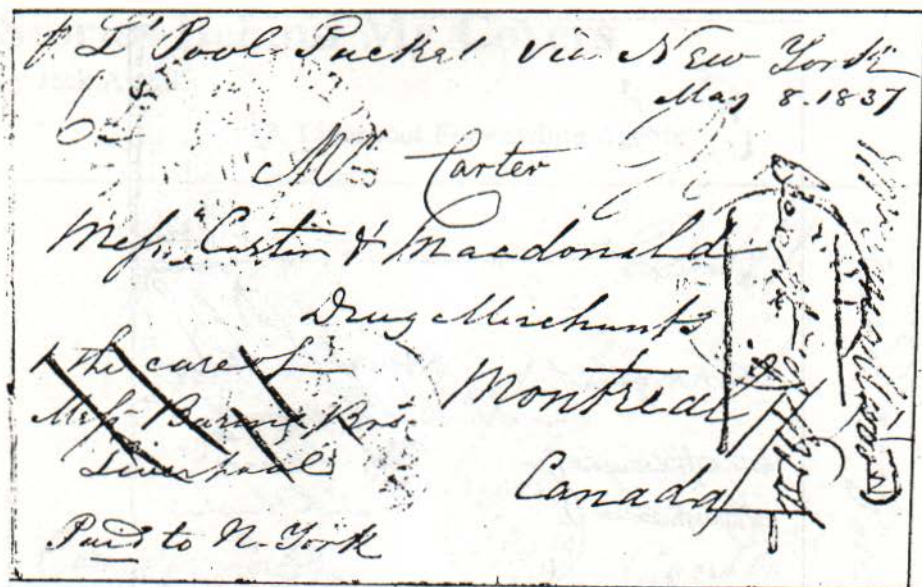 p L'Pool Packet via New York
May 8. 1837
6d
Mr Carter
Messrs Carter & Macdonald
Drug Merchants
Montreal
Canada
the care of
Messrs Baring Bros.
Liverpool
Paid to N. York